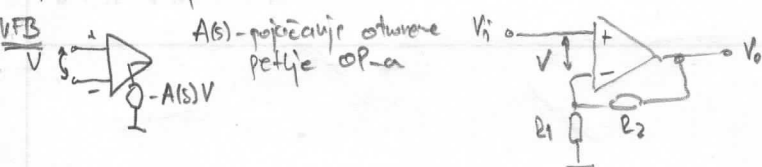 VFB
V + -
-A(s)V
A(s) - pojačanje otvorene
petlje OP-a
Vi + - V Vo
R1 R2